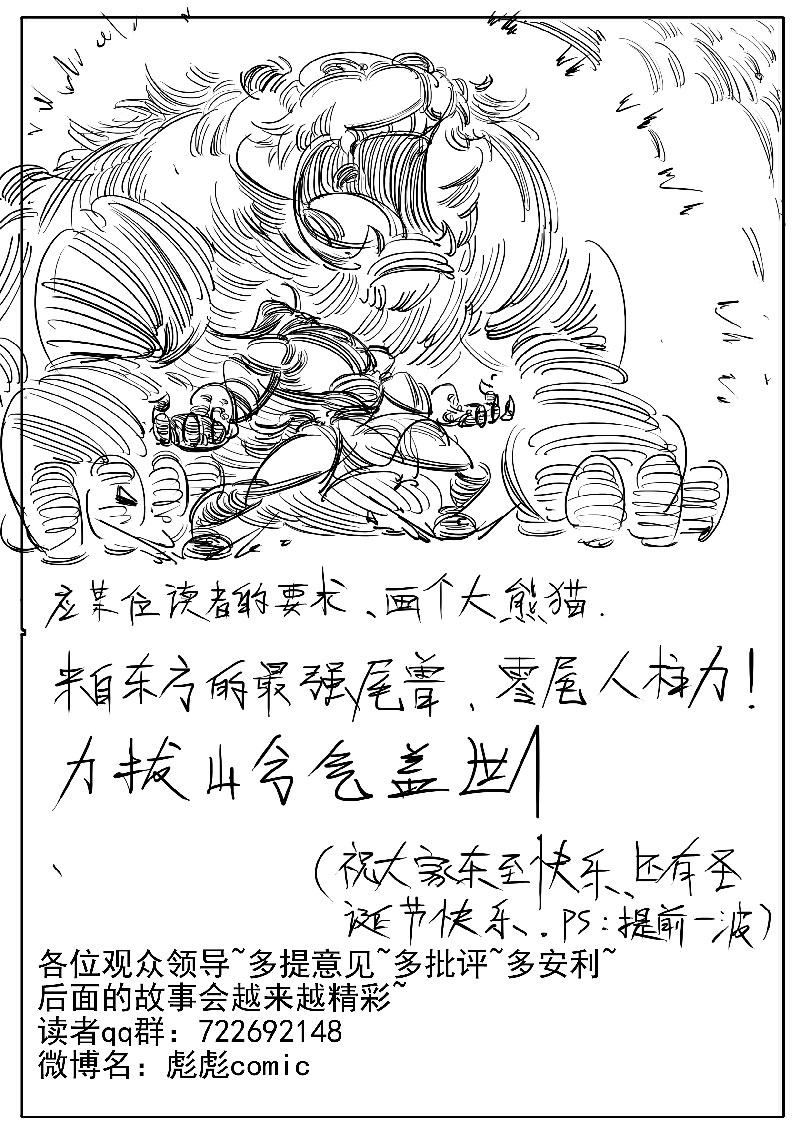 应某位读者的要求、画个大熊猫.
来自东方的最强尾兽、零尾人柱力!
力拔山兮气盖世!
(祝大家冬至快乐、还有圣
诞节快乐、. PS:提前一波)
各位观众领导~多提意见~多批评~多安利~
后面的故事会越来越精彩~
读者qq群：722692148
微博名：彪彪comic